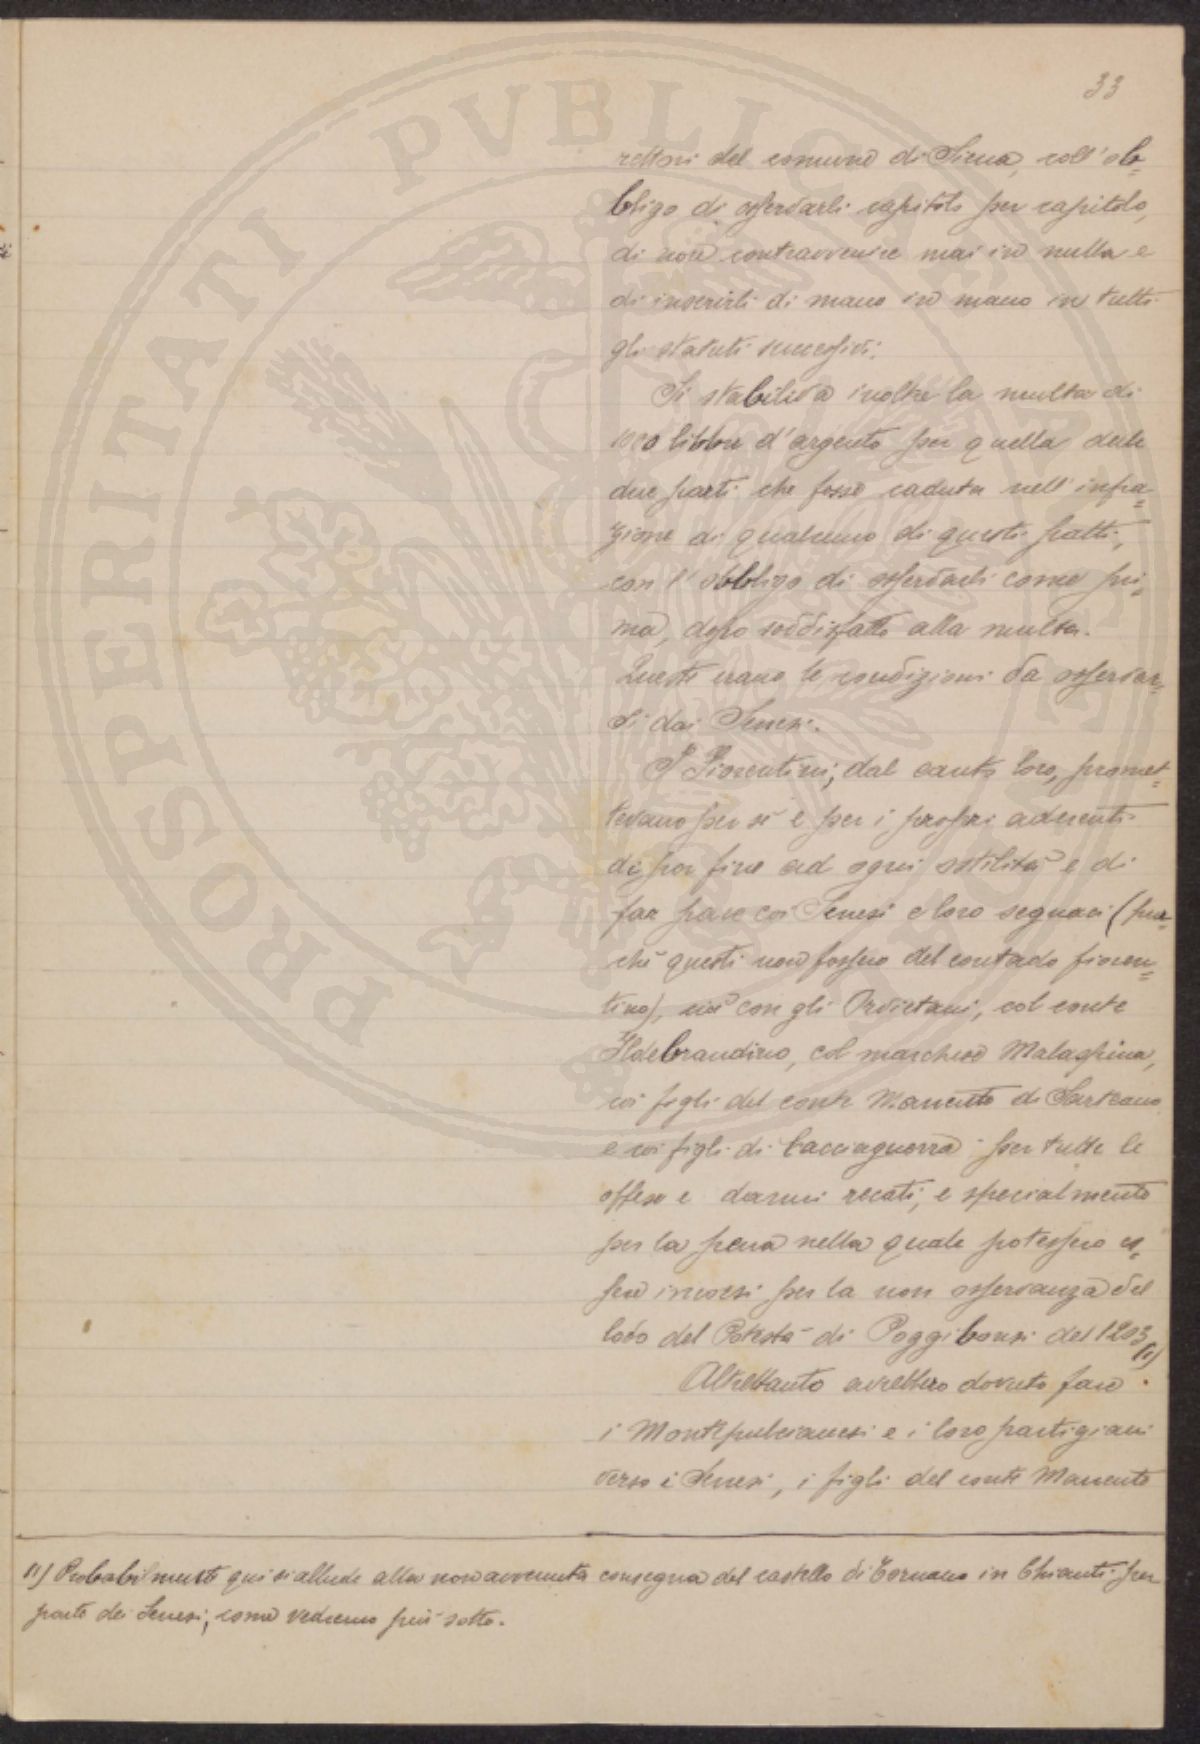 33
rettori del comune di Siena, coll'ob=
bligo di osservarli capitolo per capitolo,
di non contravvenire mai in nulla e
di inserirli di mano in mano in tutti
gli statuti successivi.
Si stabiliva inoltre la multa di
1000 libbre d'argento per quella delle
due parti che fosse caduta nell'infra=
zione di qualcuno di questi patti,
con l'obbligo di osservarli come pri=
ma, dopo soddisfatto alla multa.
Queste erano le condizioni da osservar=
si dai Senesi.
I Fiorentini, dal canto loro, promet=
tevano per sè e per i propri aderenti
di por fine ad ogni ostilità e di
far pace coi Senesi e loro seguaci (pur=
chè questi non fossero del contado fioren=
tino), cioè con gli Orvietani, col conte
Ildebrandino, col marchese Malaspina,
coi figli del conte Manente di Sarteano
e coi figli di Cacciaguerra per tutte le
offese e danni recati, e specialmente
per la pena nella quale potessero es=
sere incorsi per la non osservanza del
lodo del Potestà di Poggibonsi del 1203 (1)
Altrettanto avrebbero dovuto fare
i Montepulcianesi e i loro partigiani
verso i Senesi, i figli del conte Manente
(1) Probabilmente qui si allude alla non avvenuta consegna del castello di Tornano in Chianti per
parte dei Senesi, come vedremo più sotto.
PROSPERITATI PVBLICAE